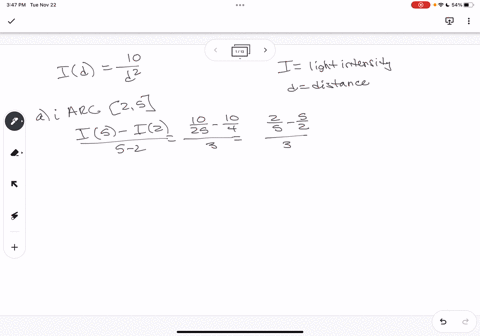 3:47 PM Tue Nov 22
54%
1 / 10
I(d) = 10/d²
I = light intensity
d = distance
a) i ARC [2,5]
I(5) - I(2) / 5-2 = 10/25 - 10/4 / 3 = 2/5 - 5/2 / 3